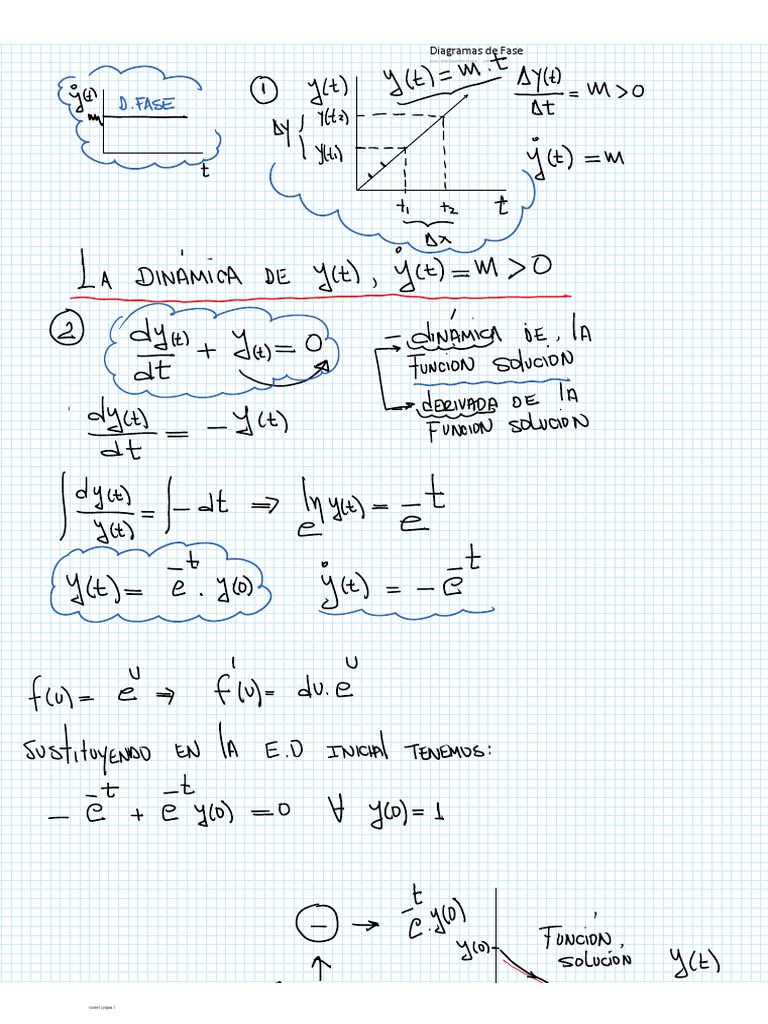 Diagramas de Fase
ẏ(t)
m
D. FASE
t
① y(t)
y(t) = m . t
Δy(t)/Δt = m > 0
Δy { y(t2)
y(t1)
ẏ(t) = m
t1 t2 t
Δx
LA DINÁMICA DE y(t), ẏ(t) = m > 0
② dy(t)/dt + y(t) = 0
- DINÁMICA DE LA
FUNCIÓN SOLUCIÓN
DERIVADA DE LA
FUNCIÓN SOLUCIÓN
dy(t)/dt = - y(t)
∫ dy(t)/y(t) = ∫ - dt ⇒ e^{ln y(t)} = e^{-t}
y(t) = e^{-t} . y(0) ẏ(t) = - e^{-t}
f(u) = e^u ⇒ f'(u) = du . e^u
SUSTITUYENDO EN LA E.D INICIAL TENEMOS:
- e^{-t} + e^{-t} y(0) = 0 ∀ y(0) = 1
⊖ → e^{-t} . y(0)
↑
y(0)
FUNCIÓN,
SOLUCIÓN
y(t)